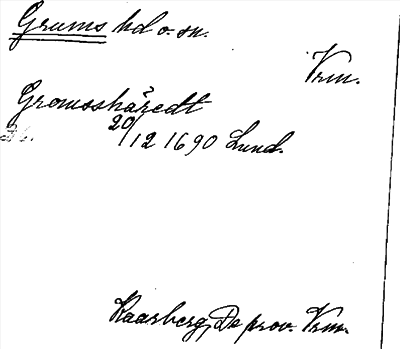 Grums hd o. sn.
Vrm.
Gromsshäredt
20/12 1690 Lund.
Kaarberg, De prov. Vrm.